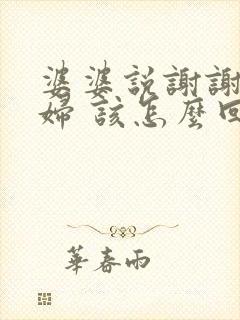 婆婆説謝謝
婦 該怎麼回
華春雨